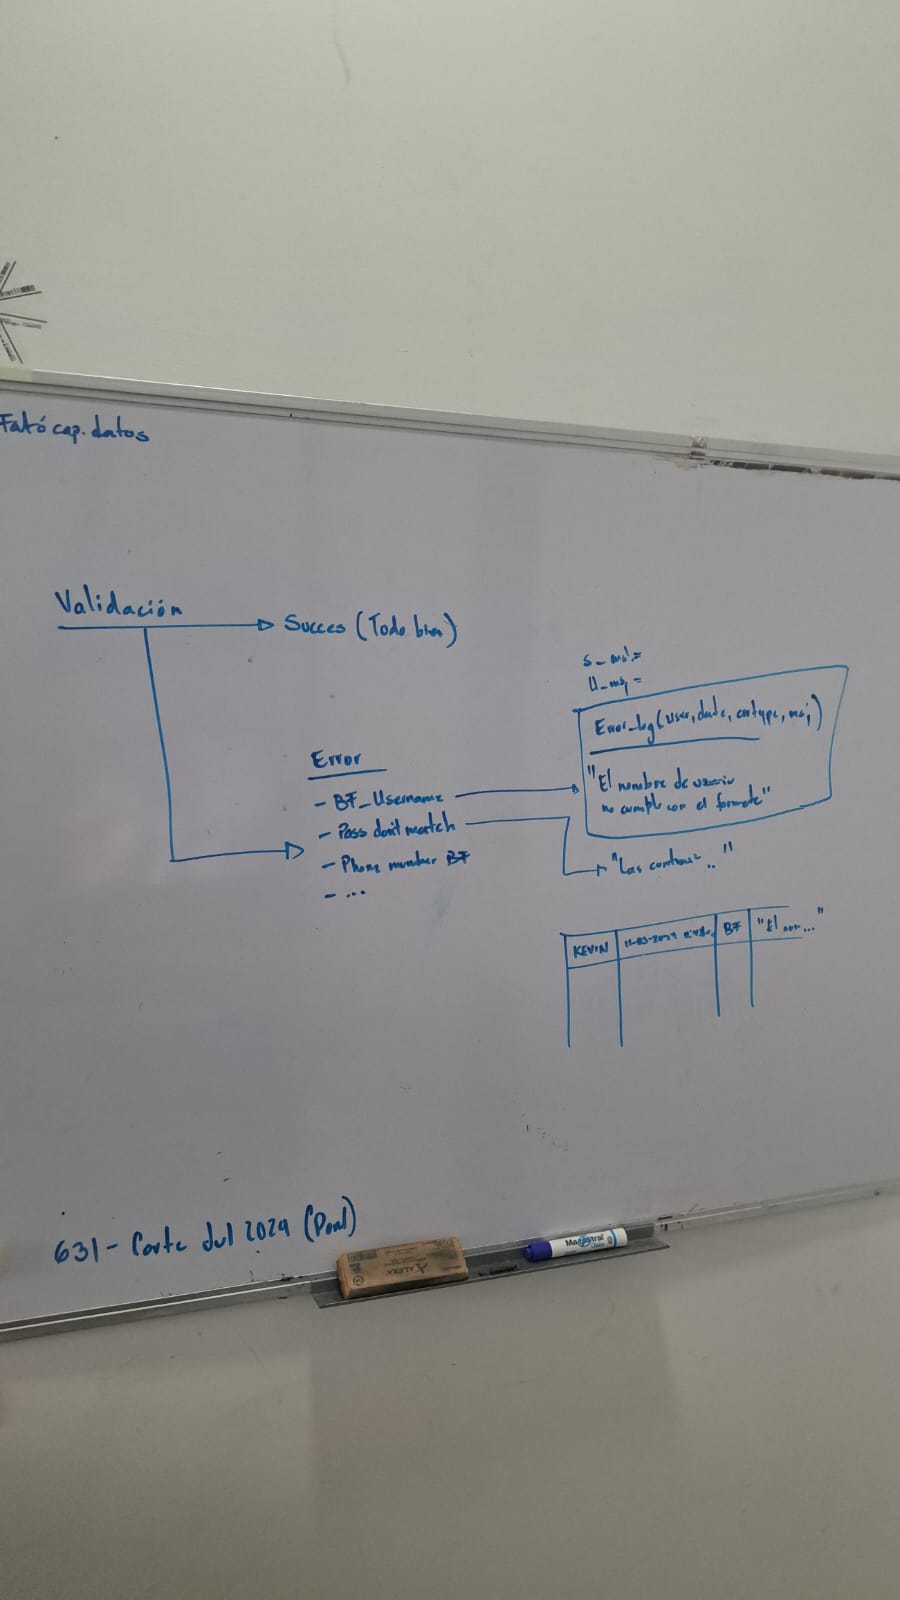 Faltó cap. datos
Validación
Succes (Todo bien)
Error
- BF_Username
- Pass don't match
- Phone number BF
- ...
U_msg =
Error_log(User, date, errtype, msj)
"El nombre de usuario
no cumple con el formato"
"Las contras
.."
KEVIN
BF
"El nom..."
631- Corte Jul 2024
ALFRA
Magistral